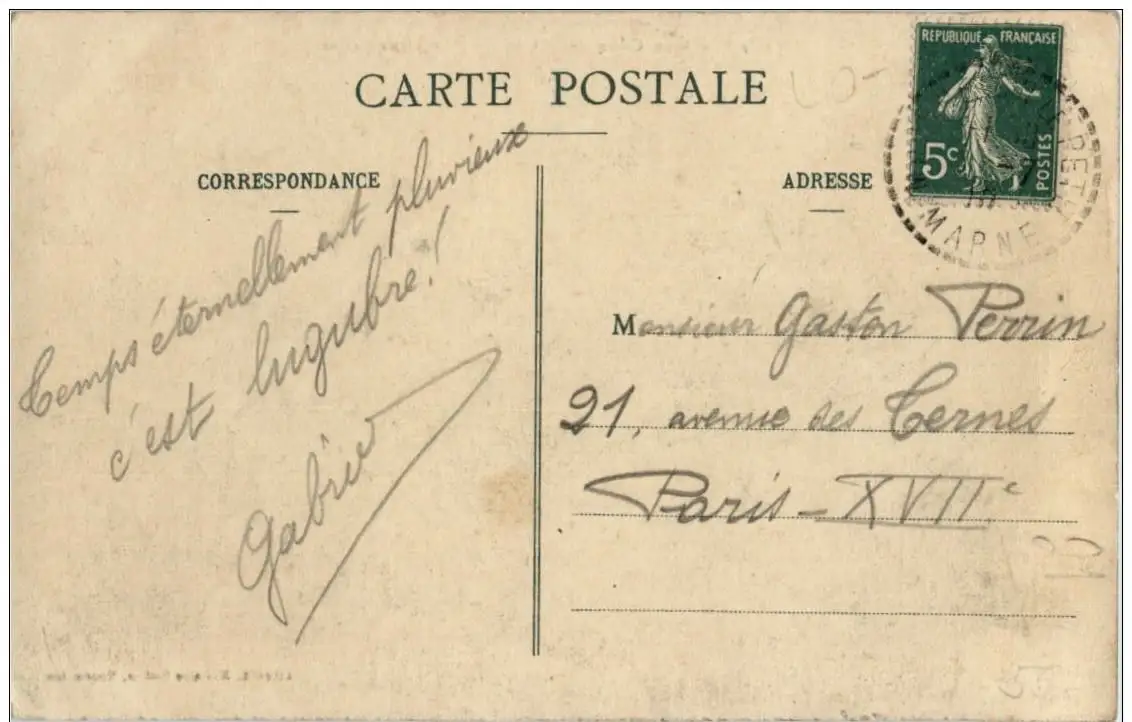 CARTE POSTALE
CORRESPONDANCE
ADRESSE
RÉPUBLIQUE FRANÇAISE
5c
POSTES
MARNE
Temps éternellement pluvieux
c'est lugubre!
Monsieur Gaston Perrin
21, avenue des Ternes
Paris - XVIIe